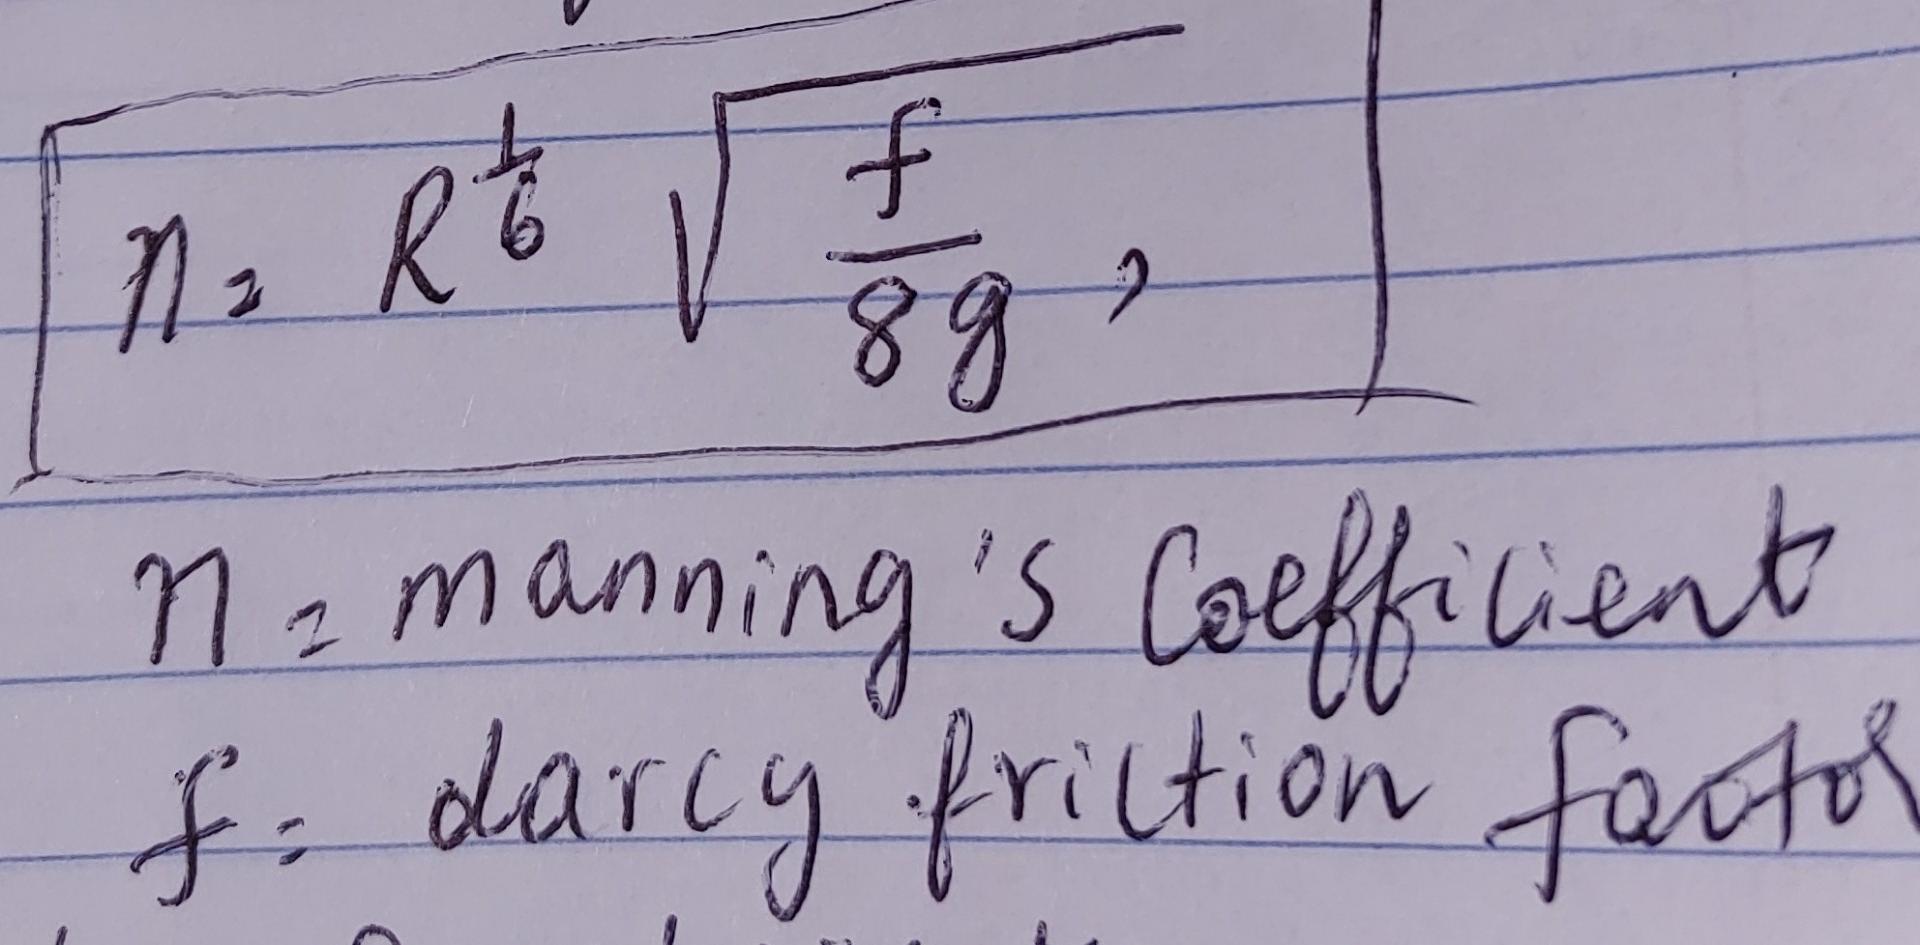 n = R^{1/6} √(f/8g) ,
n = manning's Coefficient
f = darcy friction factor